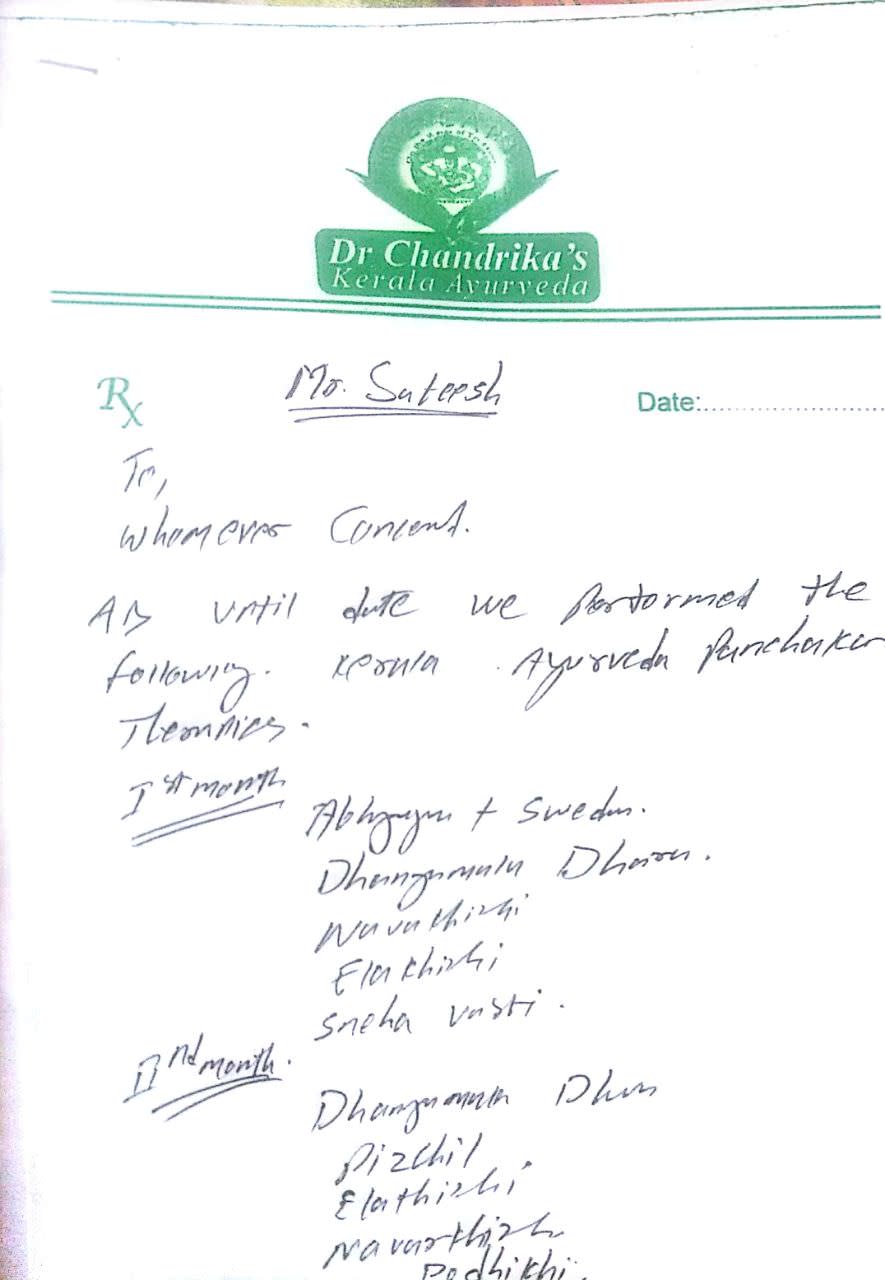 Dr Chandrika's
Kerala Ayurveda
Rx
Mr. Sateesh
Date:
To,
whomever Concernd.
As until date we performed the
following. Kerala Ayurveda Panchakar
Therapies.
Ist month
Abhyagan + Swedan.
Dhanyamala Dhara.
Navakhizhi
Elakhizhi
Sneha vasti.
IInd month.
Dhanyamala Dhara
Pizchil
Elakhizhi
Navarkhizhi
Podhikhi.